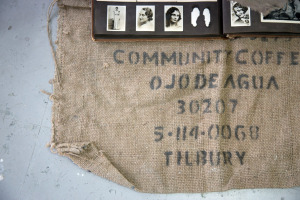 COMMUNITY COFFEE
OJO DE AGUA
30207
5-114-0068
TILBURY